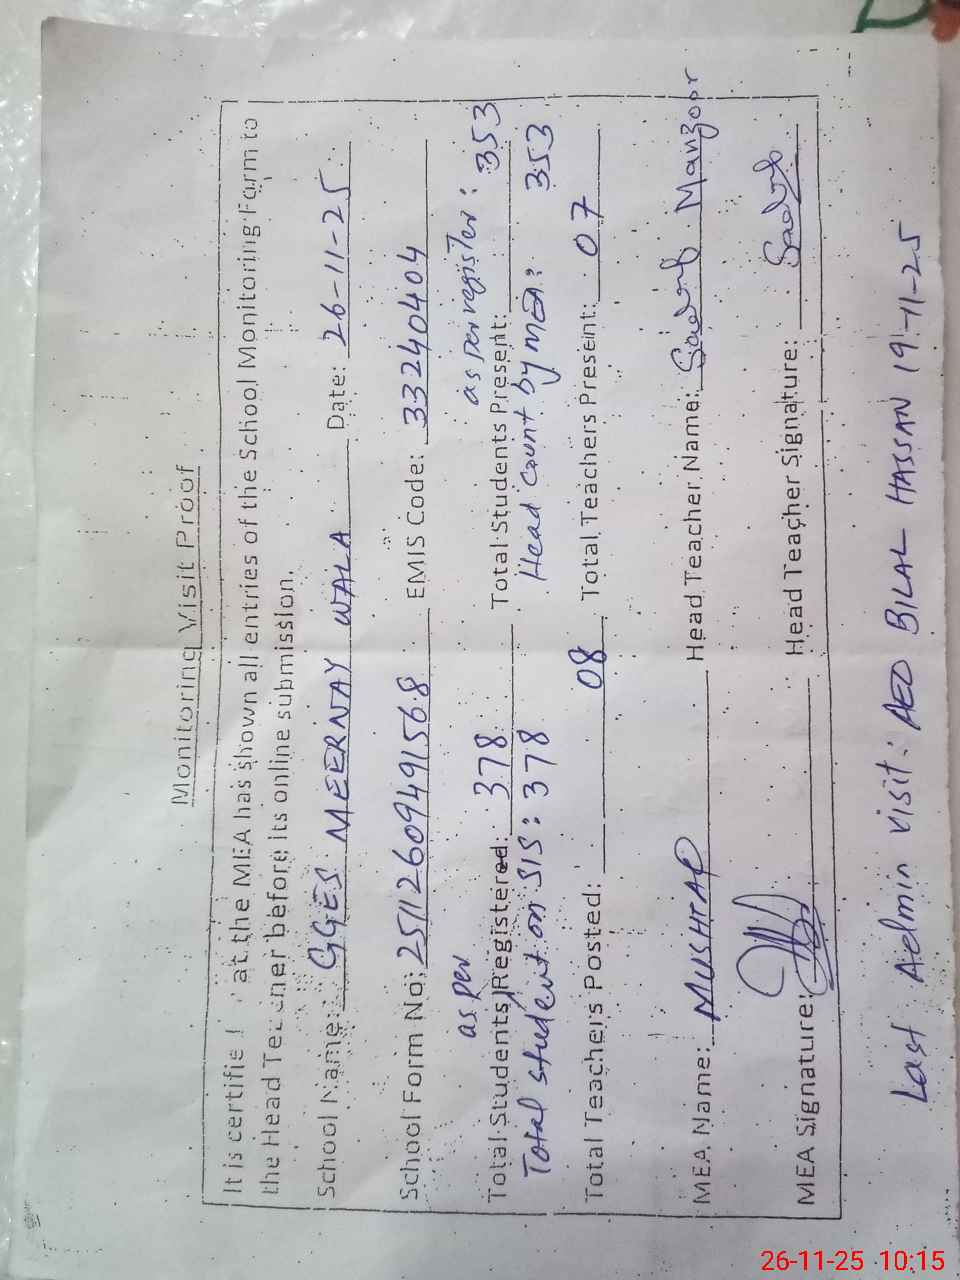 Monitoring Visit Proof
It is certifie at the MEA has shown all entries of the School Monitoring Form to
the Head Teacher before its online submission.
School Name: GGES MEERNAY WALA Date: 26-11-25
School Form No: 25112609491568 EMIS Code: 33240404
as per as per register: 353
Total Students Registered: 378 Total Students Present:
Total student on SIS: 378 Head count by MEA: 353
Total Teachers Posted: 08 Total Teachers Present: 07
MEA Name: MUSHTAQ Head Teacher Name: Manzoor
MEA Signature: Head Teacher Signature:
Last Admin visit: AEO BILAL HASSAN 19-11-25
26-11-25 10:15